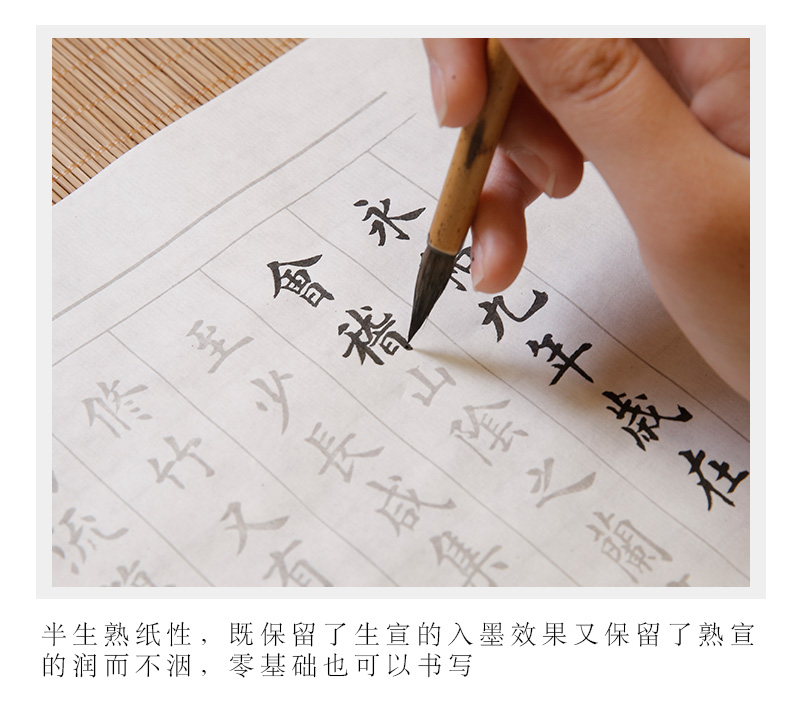 永和九年歲在
會稽山陰之蘭
至少長咸集
修竹又有
流
半生熟纸性，既保留了生宣的入墨效果又保留了熟宣
的润而不洇，零基础也可以书写